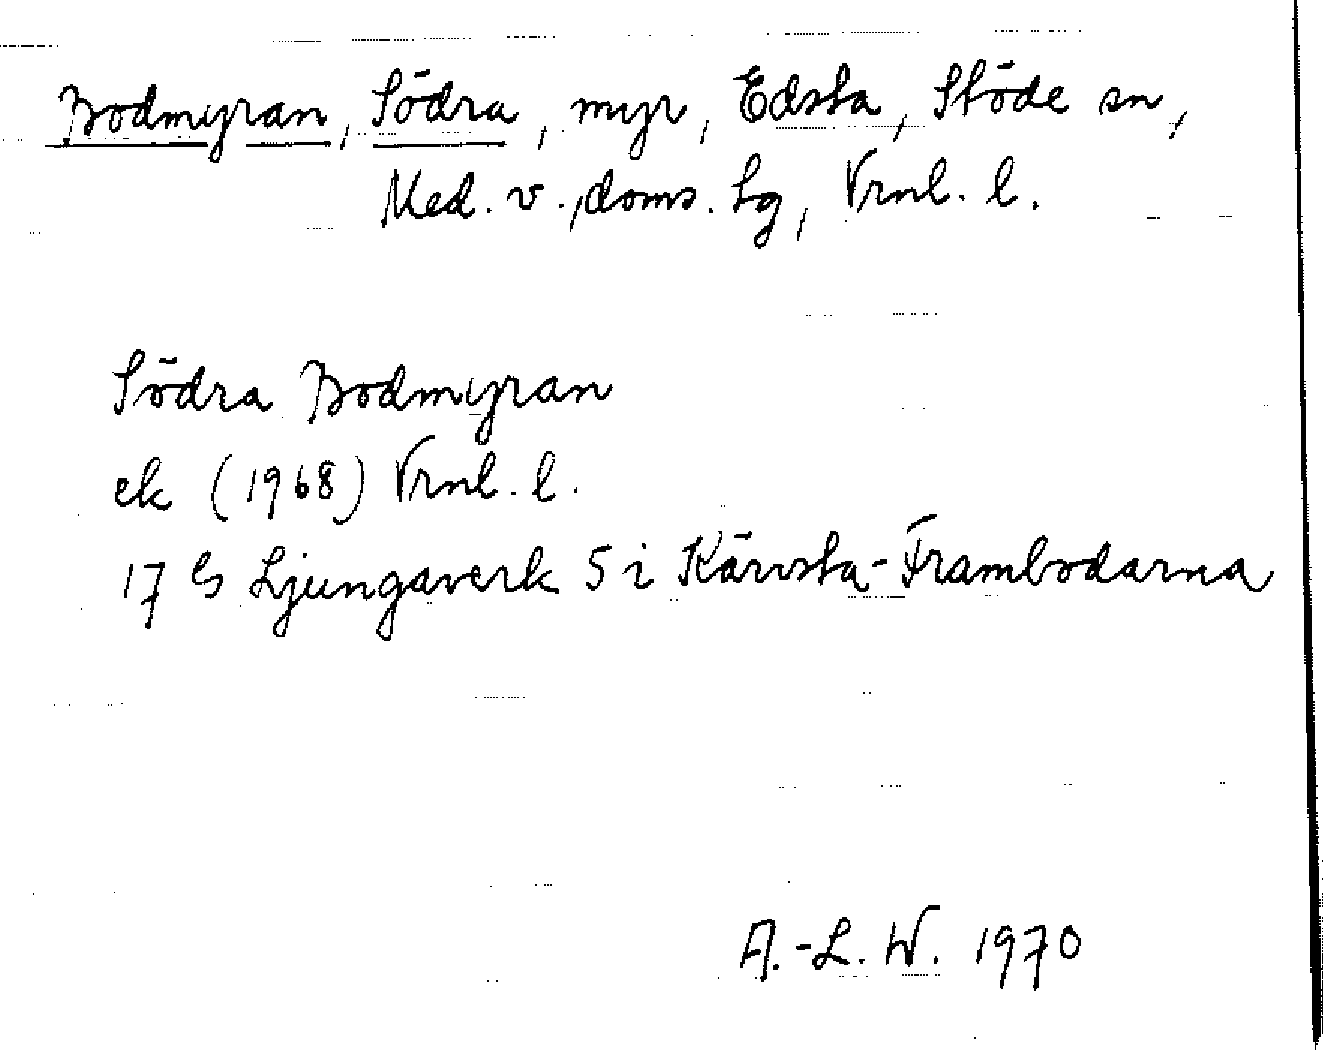 Bodmyran, Södra, myr, Edsta, Stöde sn,
Med. v., doms. lg, Vrnl. l.
Södra Bodmyran
ek (1968) Vrnl. l.
17 G Ljungaverk 5 i Kärvsta-Frambodarna
A.-L. W. 1970